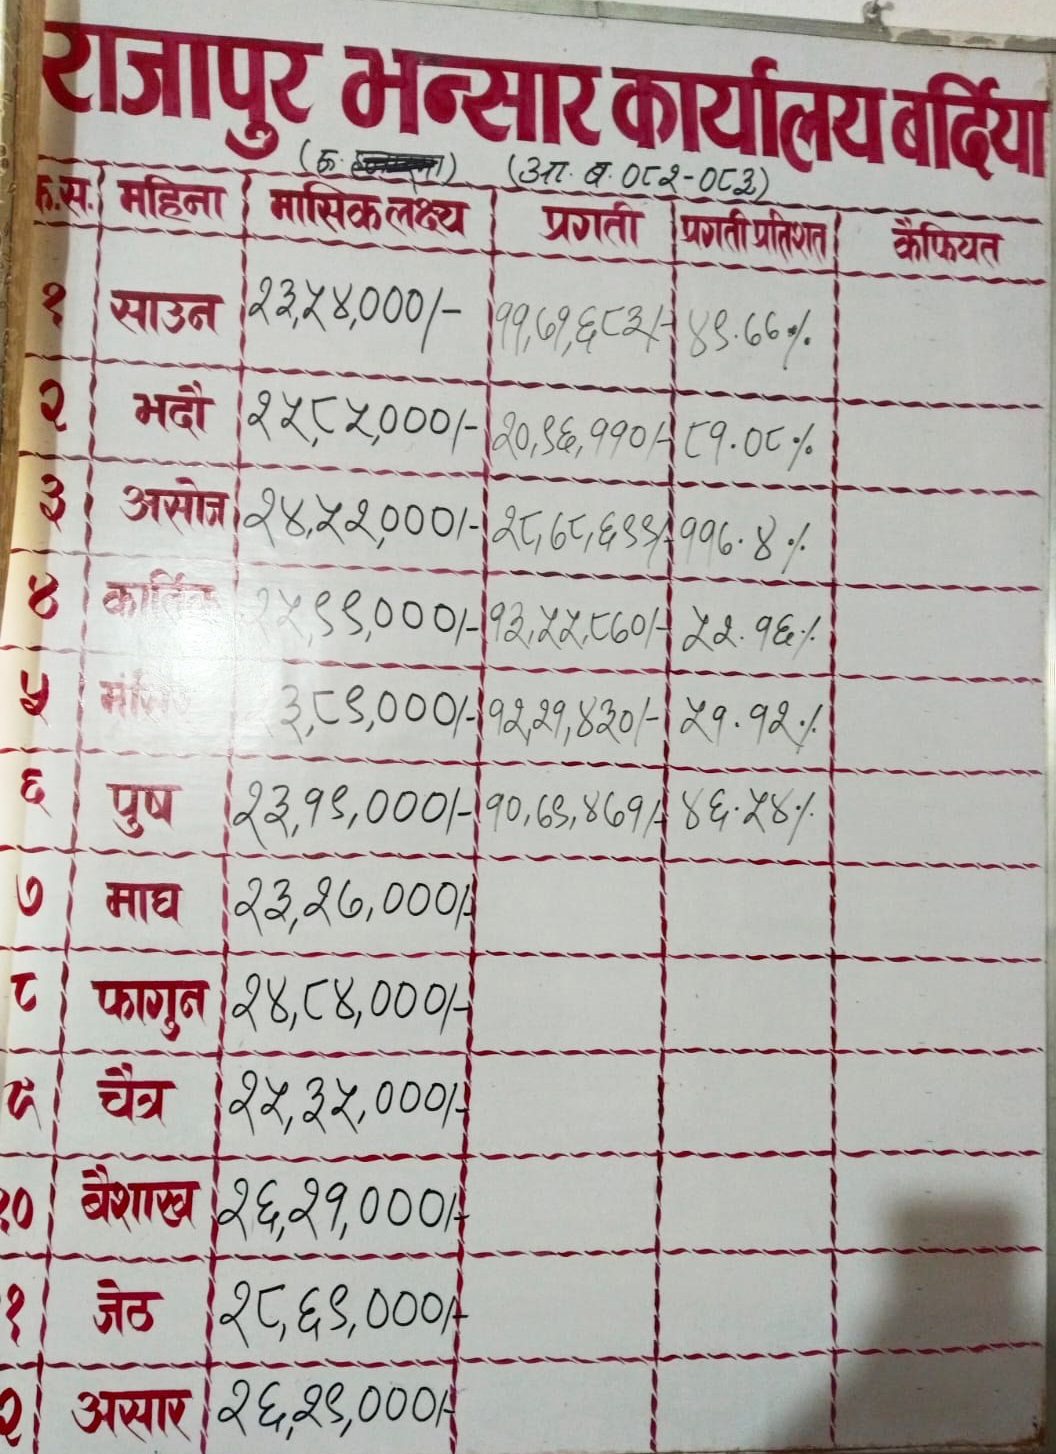 राजापुर भन्सार कार्यालय बर्दिया
(आ. ब. ०८२-०८३)
क्र.स. महिना मासिक लक्ष्य प्रगती प्रगती प्रतिशत कैफियत
१ साउन २३,५४,०००/- ११,७१,६८३/- ४९.७७%
२ भदौ २५,८५,०००/- २०,९६,११०/- ८१.०८%
३ असोज २४,५२,०००/- २८,७८,६९९/- ११७.४%
४ कार्तिक २५,९९,०००/- १३,५५,८७०/- ५२.१६%
५ मंसिर २३,८९,०००/- १२,२१,४३०/- ५१.१२%
६ पुष २३,१९,०००/- १०,७९,४७१/- ४६.५४%
७ माघ २३,२७,०००/-
८ फागुन २४,८४,०००/-
९ चैत्र २५,३५,०००/-
१० बैशाख २६,२१,०००/-
११ जेठ २८,६९,०००/-
१२ असार २६,२९,०००/-